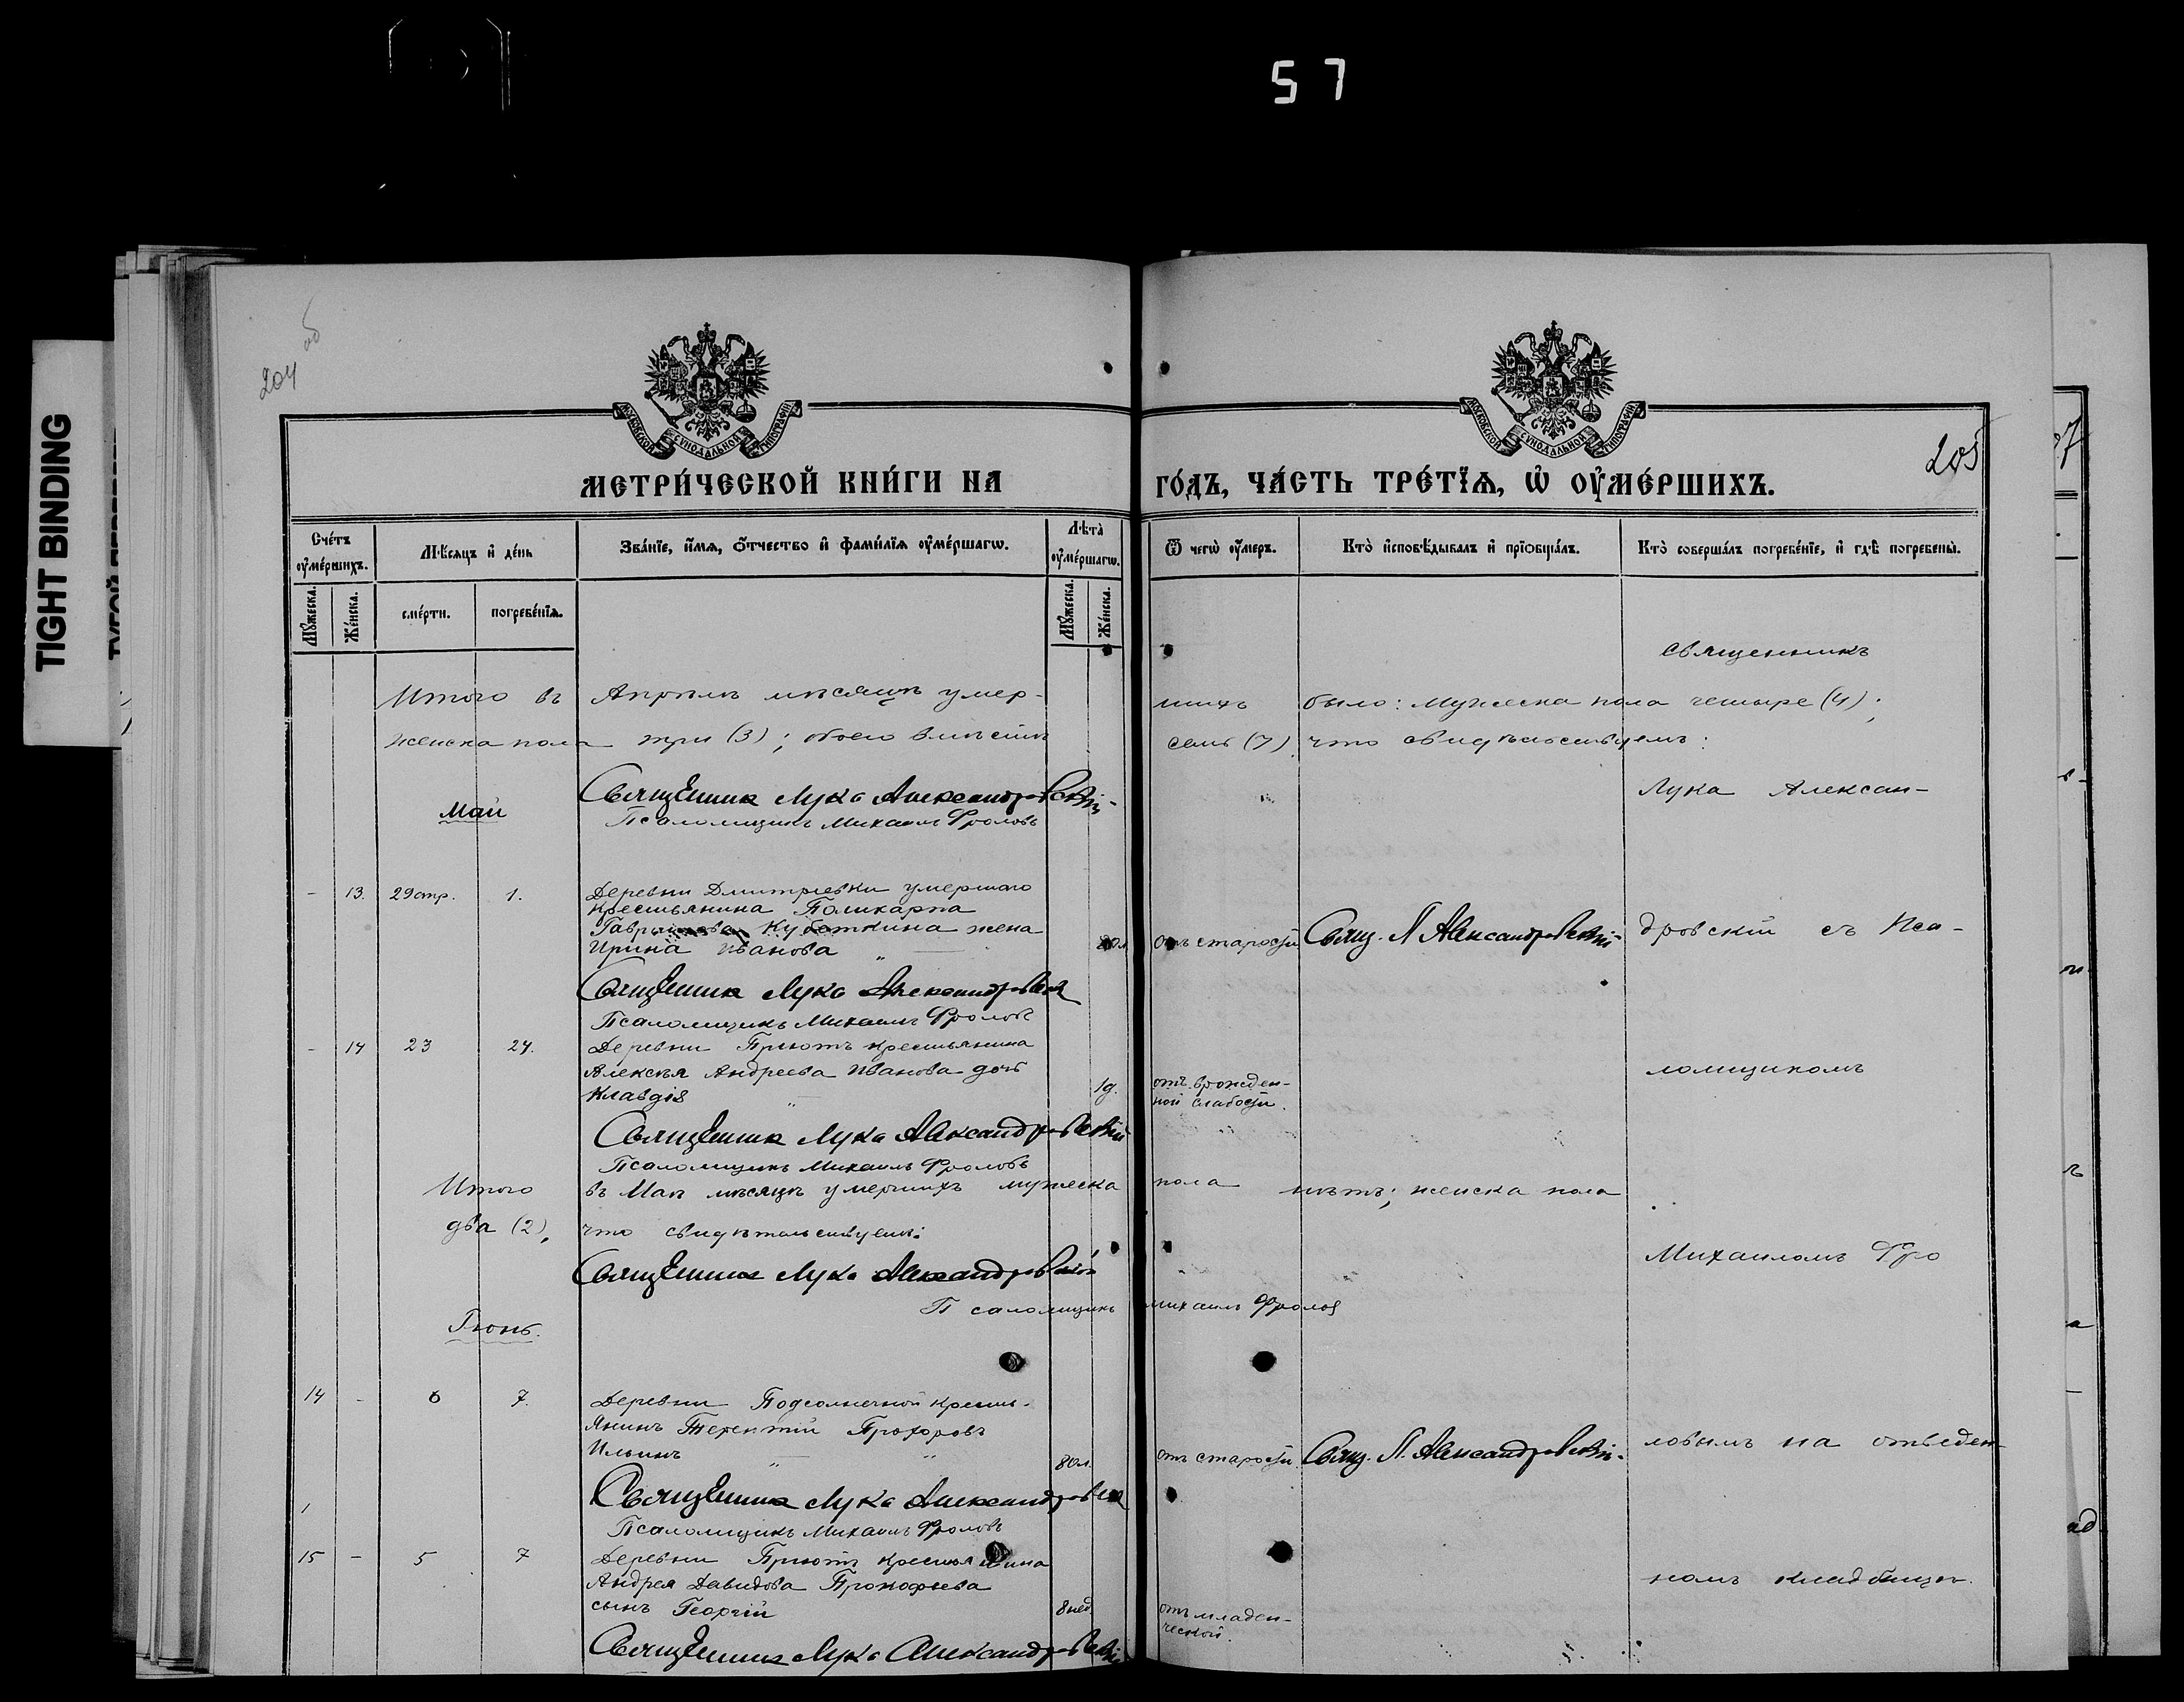 57
TIGHT BINDING
204 об
205
МОСКОВСКОЙ СУНОДАЛЬНОЙ ТИПОГРАФІИ
МОСКОВСКОЙ СУНОДАЛЬНОЙ ТИПОГРАФІИ
МЕТРИ́ЧЕСКОЙ КНИ́ГИ НА ГО́ДЪ, ЧА́СТЬ ТРЕ́ТІѦ, Ѡ ОУ҆МЕ́РШИХЪ.
Сче́тъ оу҆ме́ршихъ.
Мѣ́сяцъ и҆ де́нь
Зва́нїе, и҆́мѧ, ѻ҆́тчество и҆ фами́лїѧ оу҆ме́ршагѡ.
Лѣта̀ оу҆ме́ршагѡ.
Ѿ чегѡ̀ оу҆́меръ.
Кто̀ и҆сповѣ́дывалъ и҆ прїѻбща́лъ.
Кто̀ соверша́лъ погребе́нїе, и҆ гдѣ̀ погребены̀.
Мꙋ́жеска.
Же́нска.
сме́рти.
погребе́нїѧ.
Мꙋ́жеска.
Же́нска.
священникъ
Итого въ Апрѣлѣ мѣсяцѣ умер-
шихъ было: мужеска пола четыре (4);
женска пола три (3); обоего вмѣстѣ
семь (7) что свидѣтельствуемъ:
Священникъ Лука Александровскій
Май
Псаломщикъ Михаилъ Фроловъ
Лука Алексан-
- 13. 29 апр. 1. Деревни Дмитріевки умершаго
крестьянина Поликарпа
Гаврилова Кубаткина жена
Ирина Иванова 80 л отъ старости Свящ. Л Александровскій дровскій съ Пса-
Священникъ Лука Александровскій
Псаломщикъ Михаилъ Фроловъ
- 14 23 24. Деревни Пріютъ крестьянина
Алексѣя Андреева Иванова дочь
Клавдія 1 д. отъ врожден-
ной слабости.
ломщикомъ
Священникъ Лука Александровскій
Псаломщикъ Михаилъ Фроловъ
Итого въ Маѣ мѣсяцѣ умершихъ мужеска пола нѣтъ; женска пола
два (2), что свидѣтельствуемъ:
Священникъ Лука Александровскій
Михаиломъ Фро
Псаломщикъ Михаилъ Фроловъ
Іюнь.
14 - 6 7. Деревни Подсолнечной кресть-
янинъ Терентій Прохоровъ
Ильинъ 80 л. отъ старости Свящ. Л. Александровскій
ловымъ на отведен-
Священникъ Лука Александровскій
Псаломщикъ Михаилъ Фроловъ
15 - 5 7 Деревни Пріютъ крестьянина
Андрея Давидова Прокофьева
сынъ Георгій 8 нед отъ младен-
ческой.
номъ кладбищѣ.
Священникъ Лука Александровскій